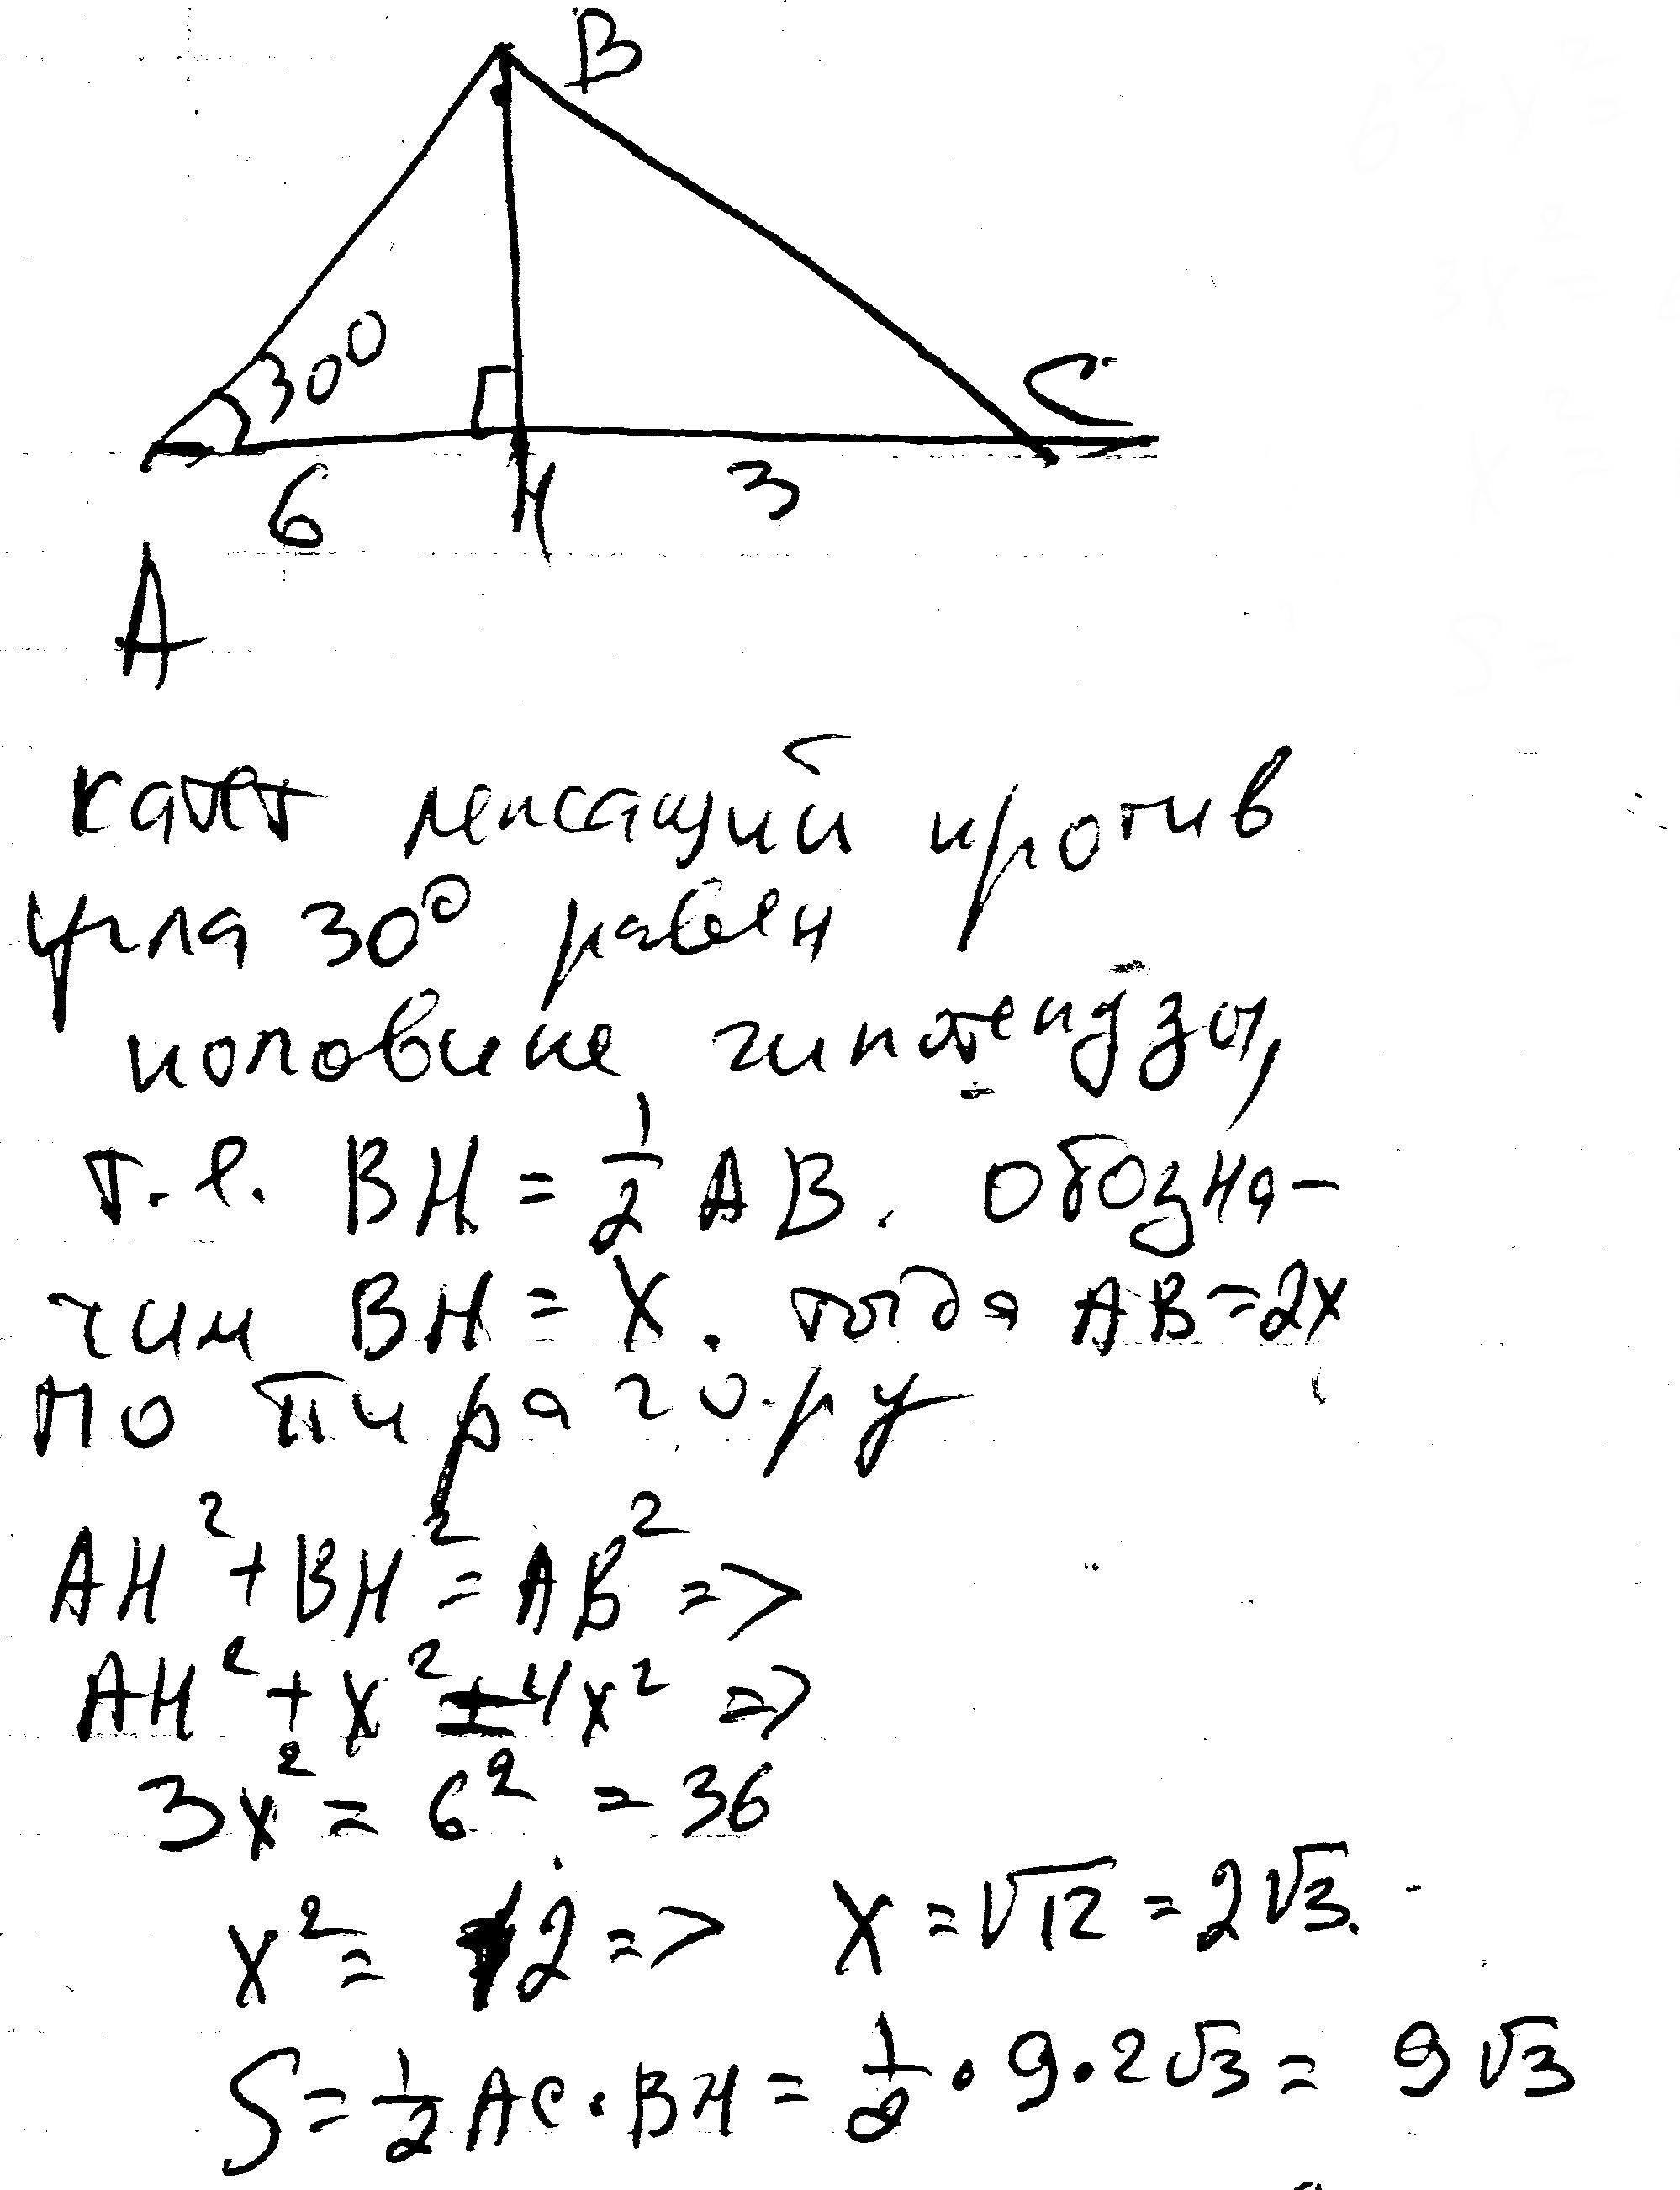 B
30°
C
6
H
3
A
катет лежащий против
угла 30° равен
половине гипотенузы,
т.е. BH = 1/2 AB. Обозна-
чим BH = x. тогда AB = 2x
по Пифагору
AH² + BH² = AB² =>
AH² + x² = 4x² =>
3x² = 6² = 36
x² = 12 => x = √12 = 2√3.
S = 1/2 AC · BH = 1/2 · 9 · 2√3 = 9√3